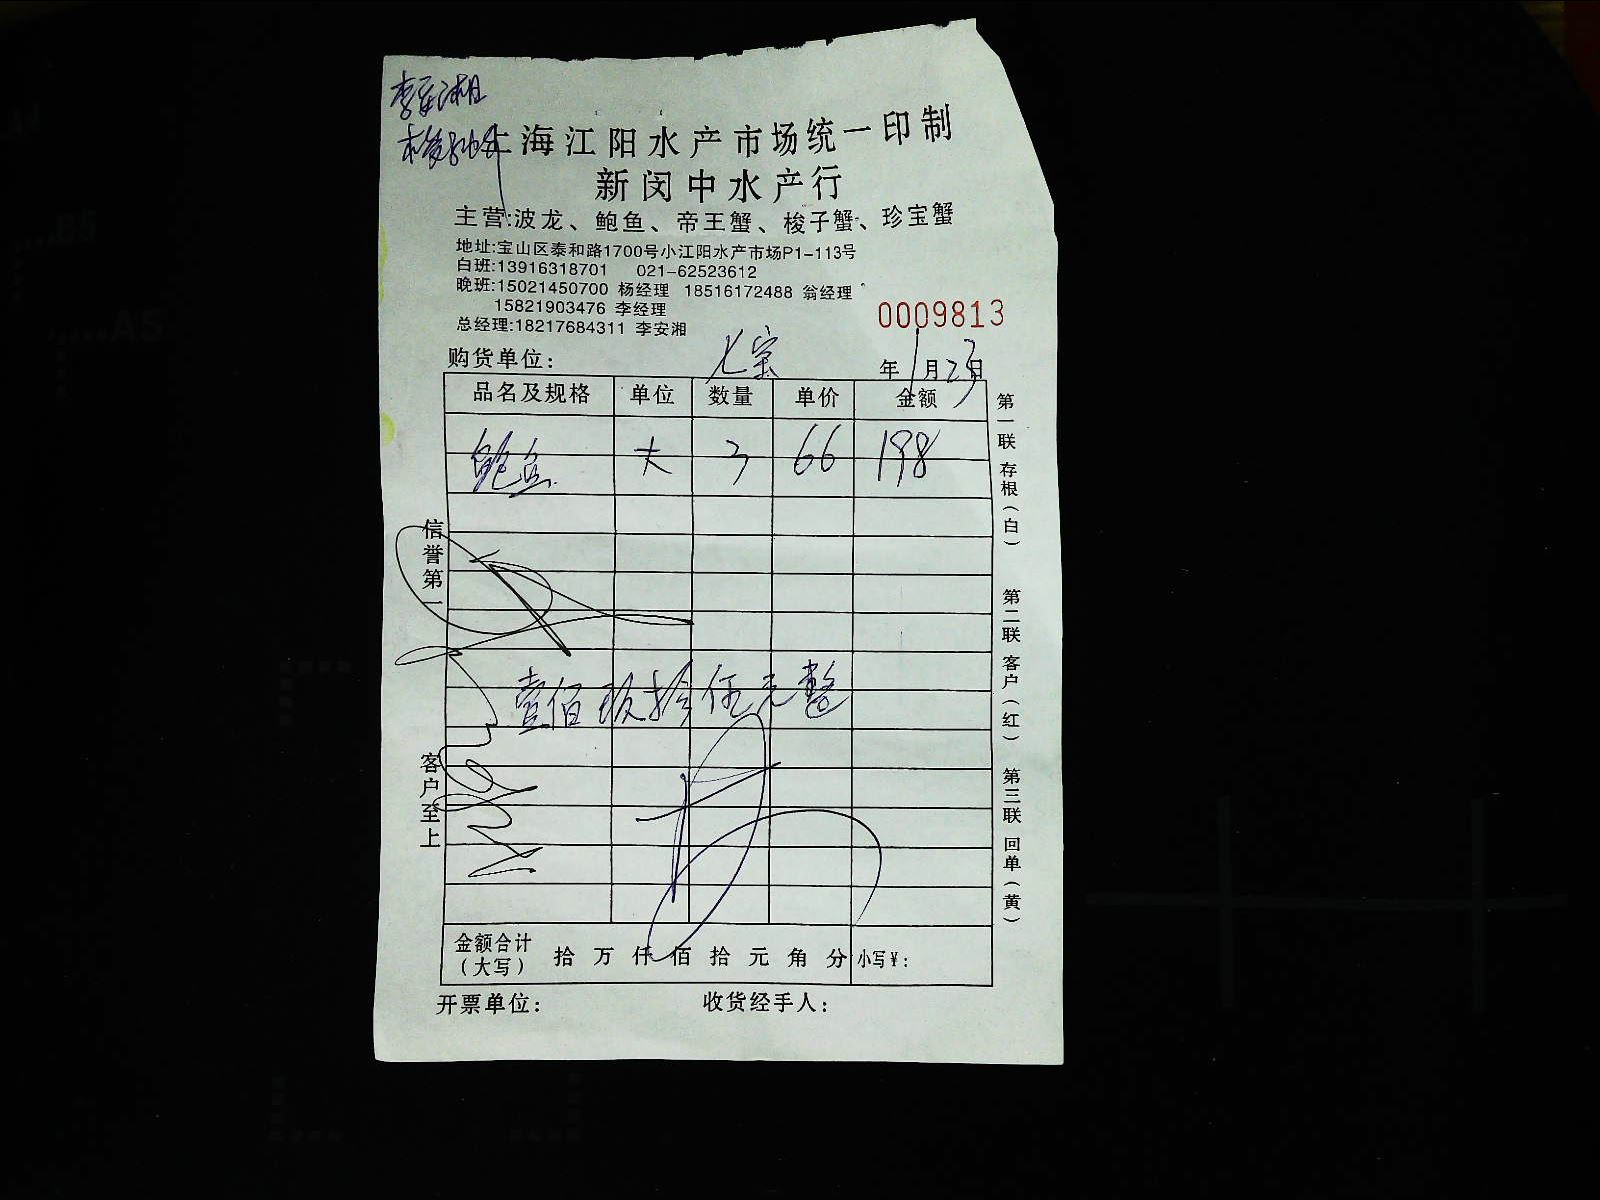 李安湘
上海江阳水产市场统一印制
新闵中水产行
主营:波龙、鲍鱼、帝王蟹、梭子蟹、珍宝蟹
地址:宝山区泰和路1700号小江阳水产市场P1-113号
白班:13916318701 021-62523612
晚班:15021450700 杨经理 18516172488 翁经理
15821903476 李经理
总经理:18217684311 李安湘
0009813
购货单位: 七宝 年1月23日
品名及规格 单位 数量 单价 金额
鲍鱼 大 3 66 198
壹佰玖拾伍元整
金额合计(大写) 拾 万 仟 佰 拾 元 角 分 小写¥:
开票单位: 收货经手人:
信誉第一
客户至上
第一联 存根(白)
第二联 客户(红)
第三联 回单(黄)